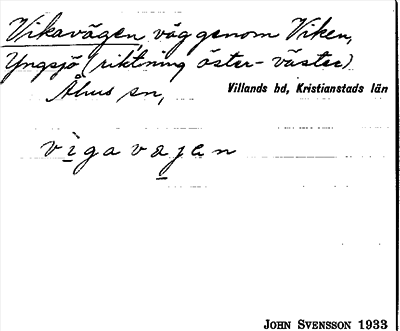 Vikavägen väg genom Viken,
Yngsjö (riktning öster-väster)
Åhus sn, Villands hd, Kristianstads län
vigavajen
JOHN SVENSSON 1933